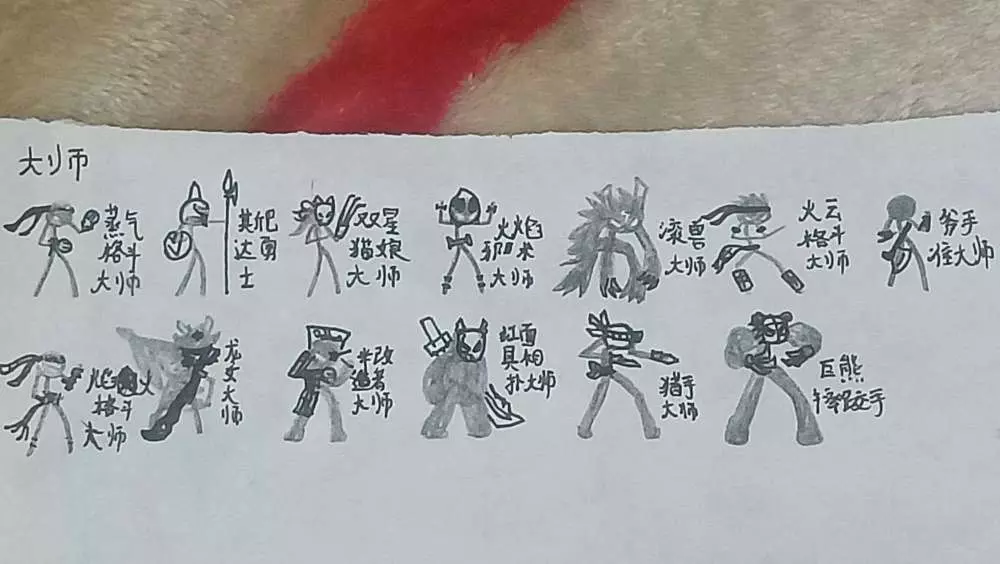 大师
蒸气
格斗
大师
斯巴
达勇
士
双星
猫娘
大师
火焰
邪术
大师
滚兽
大师
火云
格斗
大师
爷手
大师
火焰 火
格斗
大师
龙女大师
半改
造者
大师
红面
具相
扑大师
猎手
大师
巨熊
手